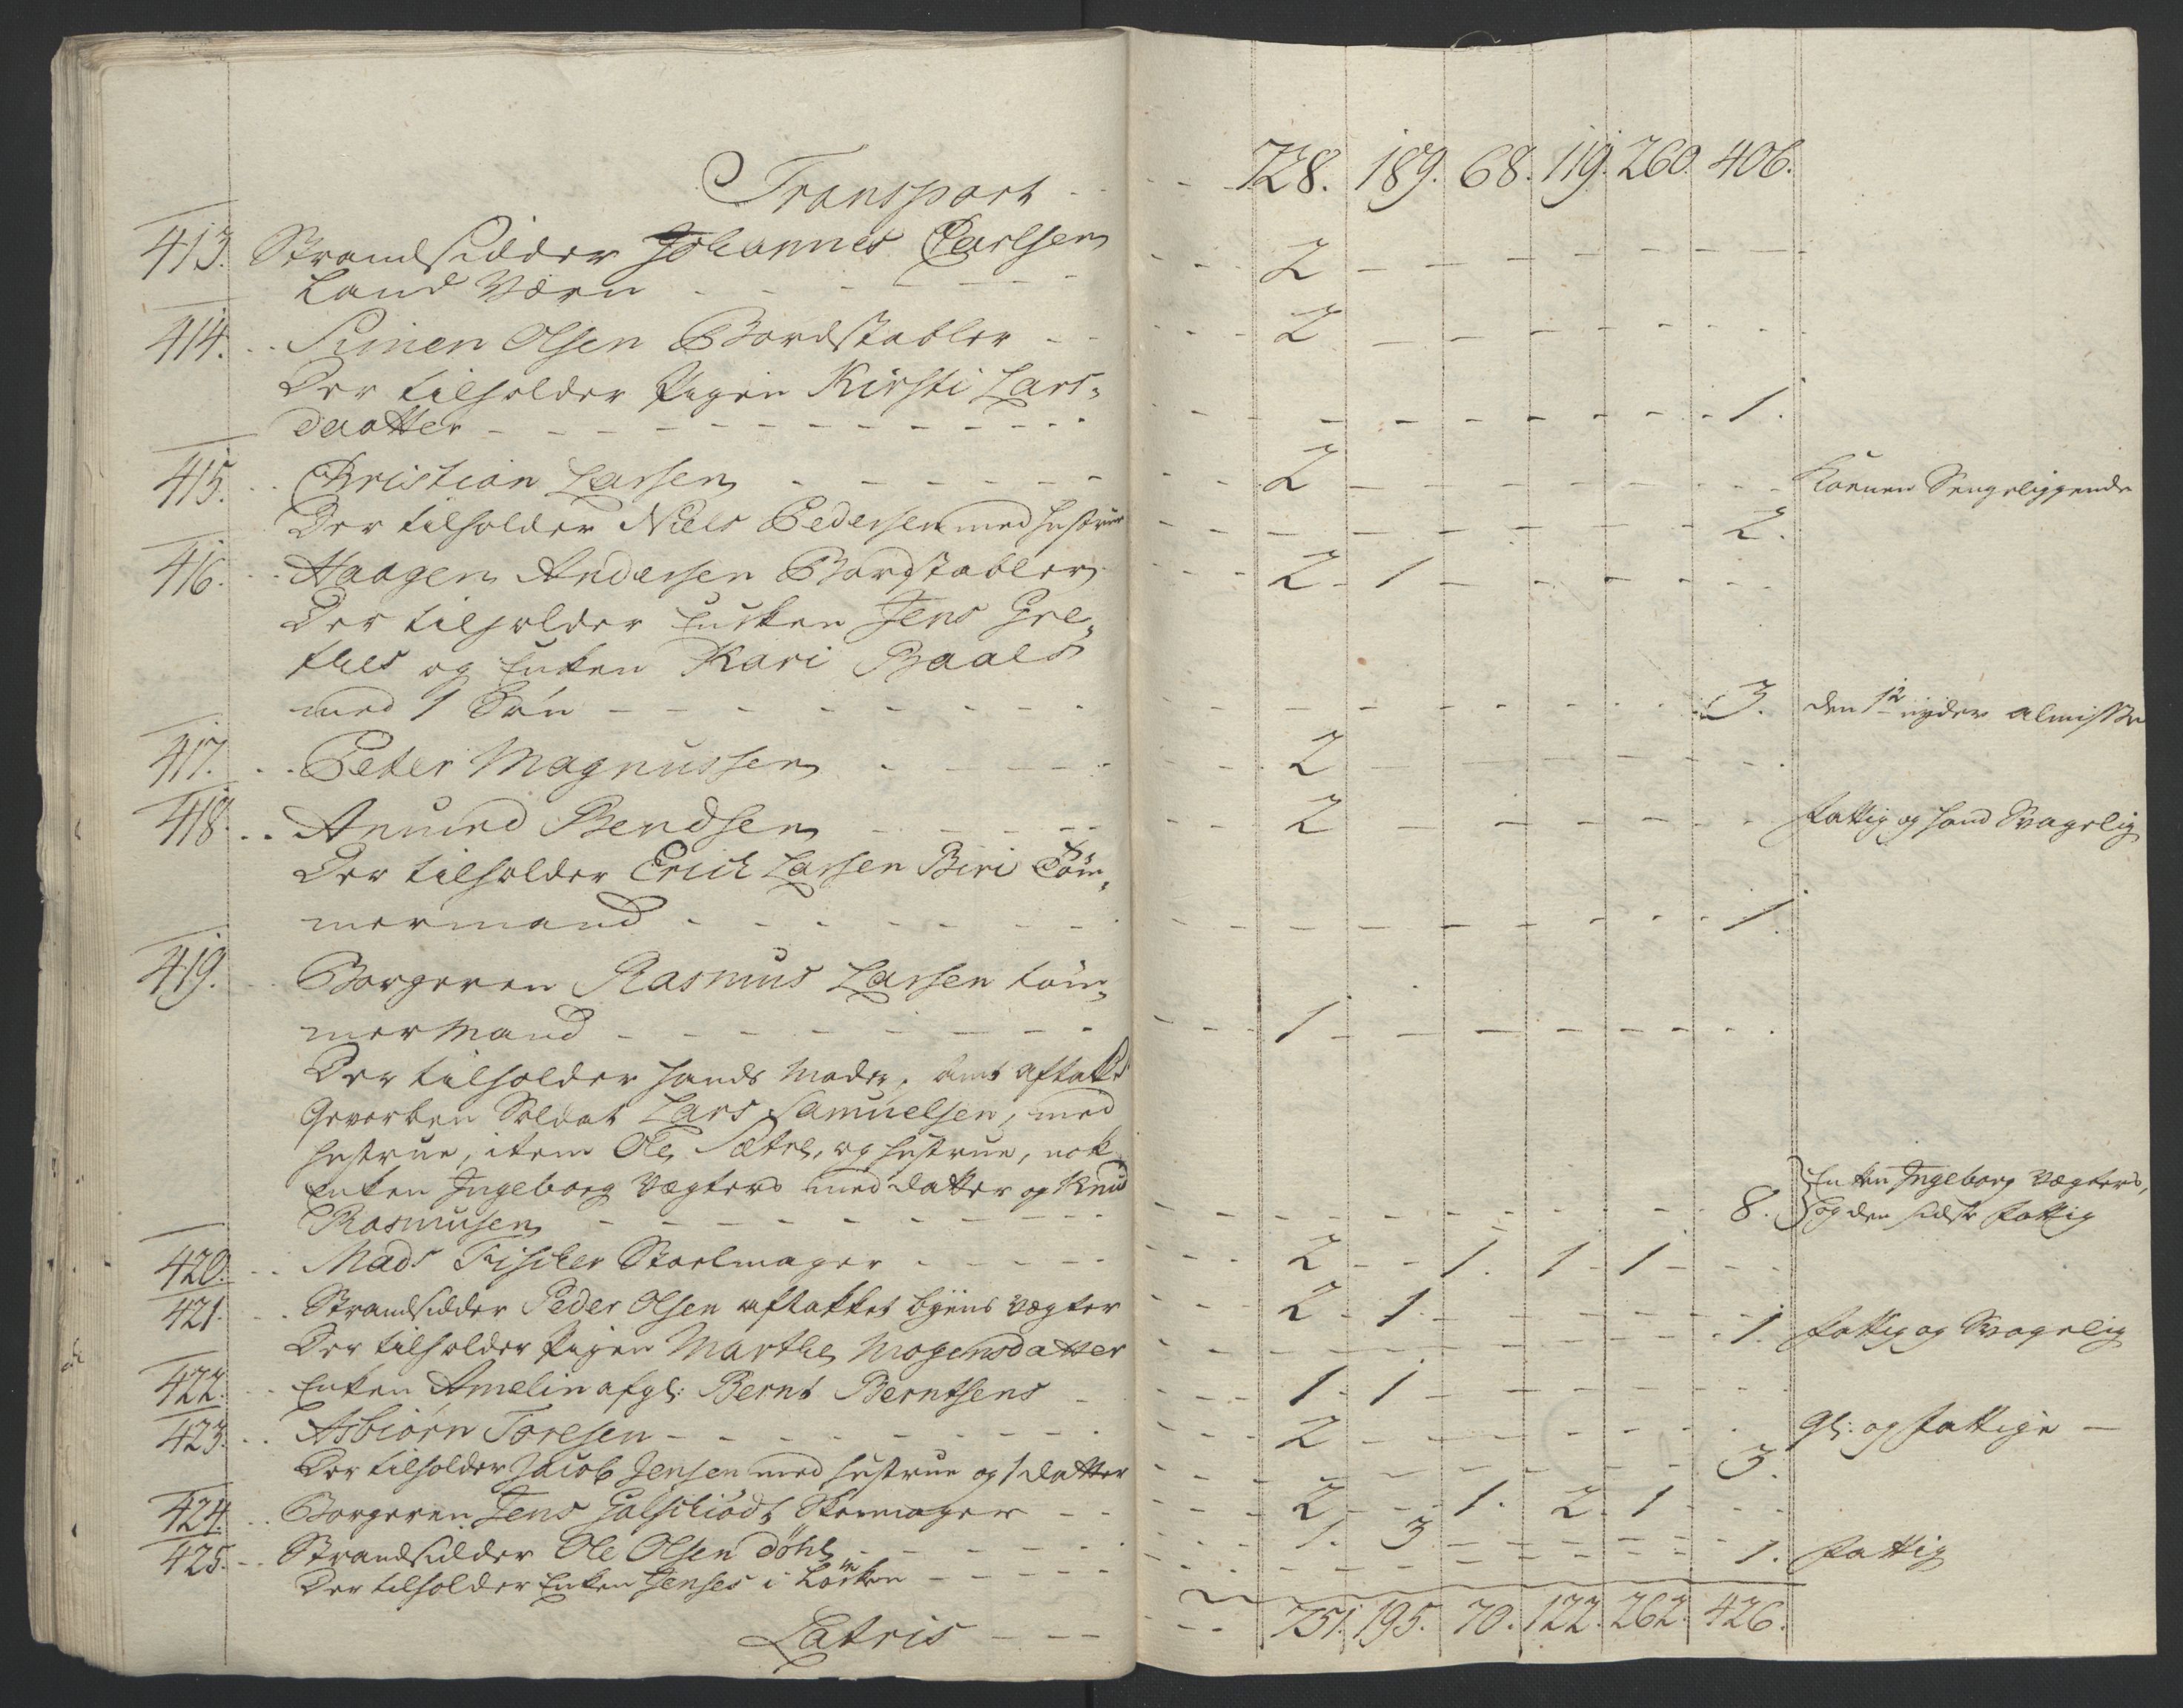 Transport - - - 728. 189. 68. 119. 260. 406.
413. Strandsidder Johannes Carlsen
Land Værn - - - 2 - - - - -
414. Simen Olsen Bordstabler - - 2 - - - - -
Der tilholder Pigen Kirsti Lars-
daatter - - - - - - 1.
415. Christian Larsen - - - 2 - - - - - Konen Sengeliggende
Der tilholder Niels Pedersen med hustrue - - - - - 2.
416. Haagen Andersen Bordstabler - - 2 - 1 - - - -
Der tilholder Enken Jens Gre-
thes og Enken Kari Baals
med 1 Søn - - - - - - 3. den 1te nyder almisse
417. Peter Magnussen - - - 2 - - - - -
418. Anund Bendsen - - - 2 - - - - - fattig og hand Svagelig
Der tilholder Erich Larsen Biri Tøm-
mermand - - - - - - 1.
419. Borgeren Rasmus Larsen tøm-
mermand - - - 1 - - - - -
Der tilholder hands Moder, samt aftakket
Gevorben Soldat Lars Samuelsen, med
hustrue, item Ole Sætre, og hustrue, nok
Enken Ingeborg Vægters med datter og Knud
Rasmusen - - - - - - 8. Enken Ingeborg Vægters,
og den sidste fattig
420. Mads Fischer Stoelmager - - - 2 - - 1. 1 - 1 - -
421. Strandsidder Peder Olsen aftakket byens Vægter - - 2 - 1. - - - -
Der tilholder Pigen Marthe Mogensdatter - - - - - 1. fattig og Svagelig
422. Enken Amelin afgl: Bernt Berntsens - 1 - 1 - - - -
423. Asbiørn Toresen - - - 2 - - - - - Gl: og fattige -
Der tilholder Jacob Jensen med hustrue og 1 datter - - - - - 3.
424. Borgeren Jens Skomager - - 2 - - 1. 2 - 1 - -
425. Strandsidder Ole Olsen Döhl - - - 1. 3 - - - -
Der tilholder Enken Jenses i Løcken - - - - - 1. fattig
Latris - - - 751. 195. 70. 122. 262. 426.